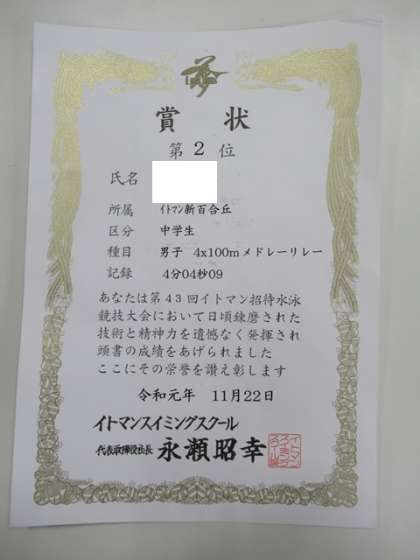 賞状
第2位
氏名
所属 ｲﾄﾏﾝ新百合丘
区分 中学生
種目 男子 4x100mメドレーリレー
記録 4分04秒09
あなたは第43回イトマン招待水泳
競技大会において日頃錬磨された
技術と精神力を遺憾なく発揮され
頭書の成績をあげられました
ここにその栄誉を讃え彰します
令和元年 11月22日
イトマンスイミングスクール
代表取締役社長 永瀬昭幸